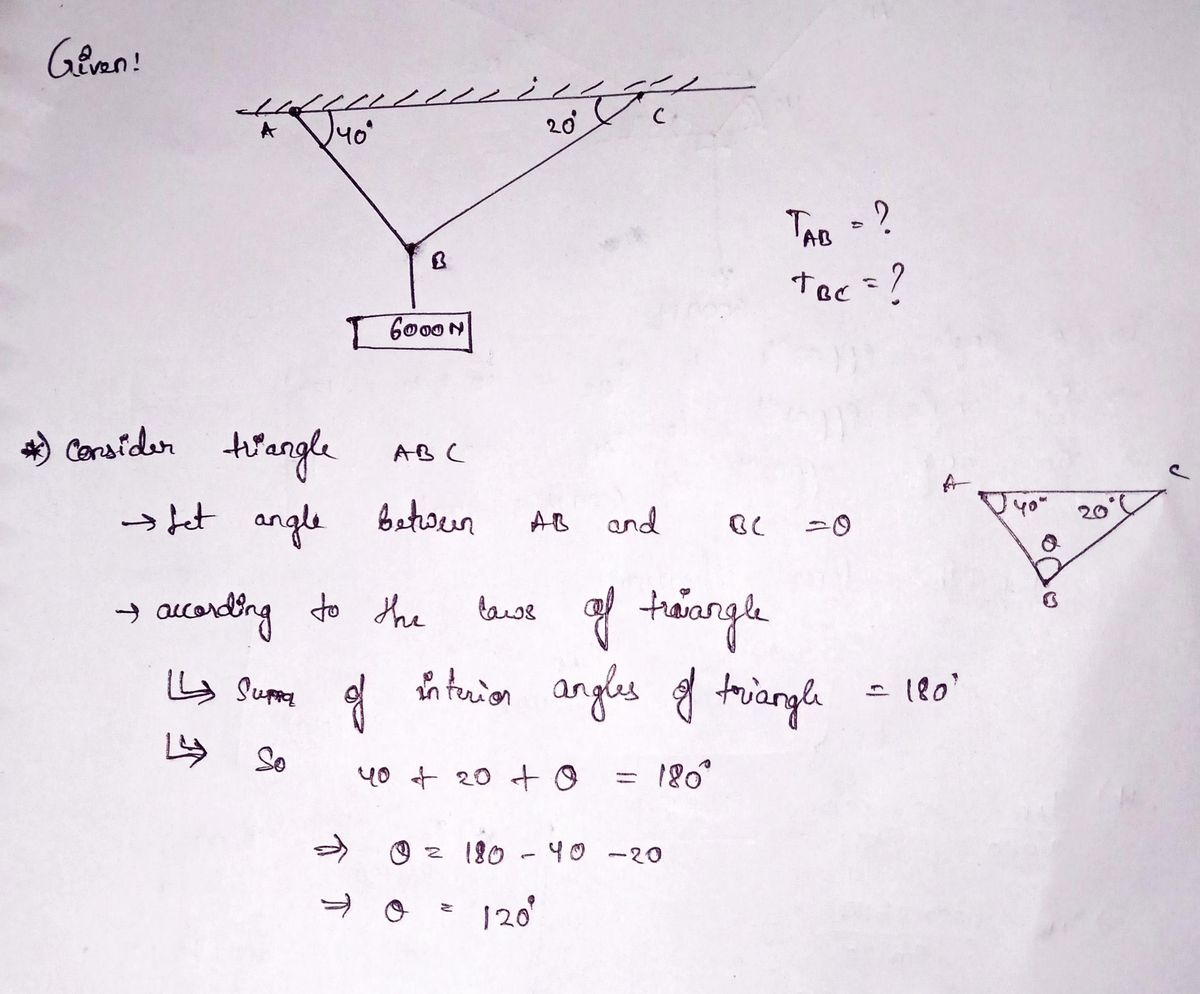 Given!
A 40° 20° C
B
6000N
T_AB = ?
T_BC = ?
*) Consider triangle ABC
→ Let angle between AB and BC = θ
A 40° 20° C
θ
B
→ according to the laws of triangle
↳ of interior angles of triangle = 180°
↳ So 40 + 20 + θ = 180°
⇒ θ = 180 - 40 - 20
⇒ θ = 120°